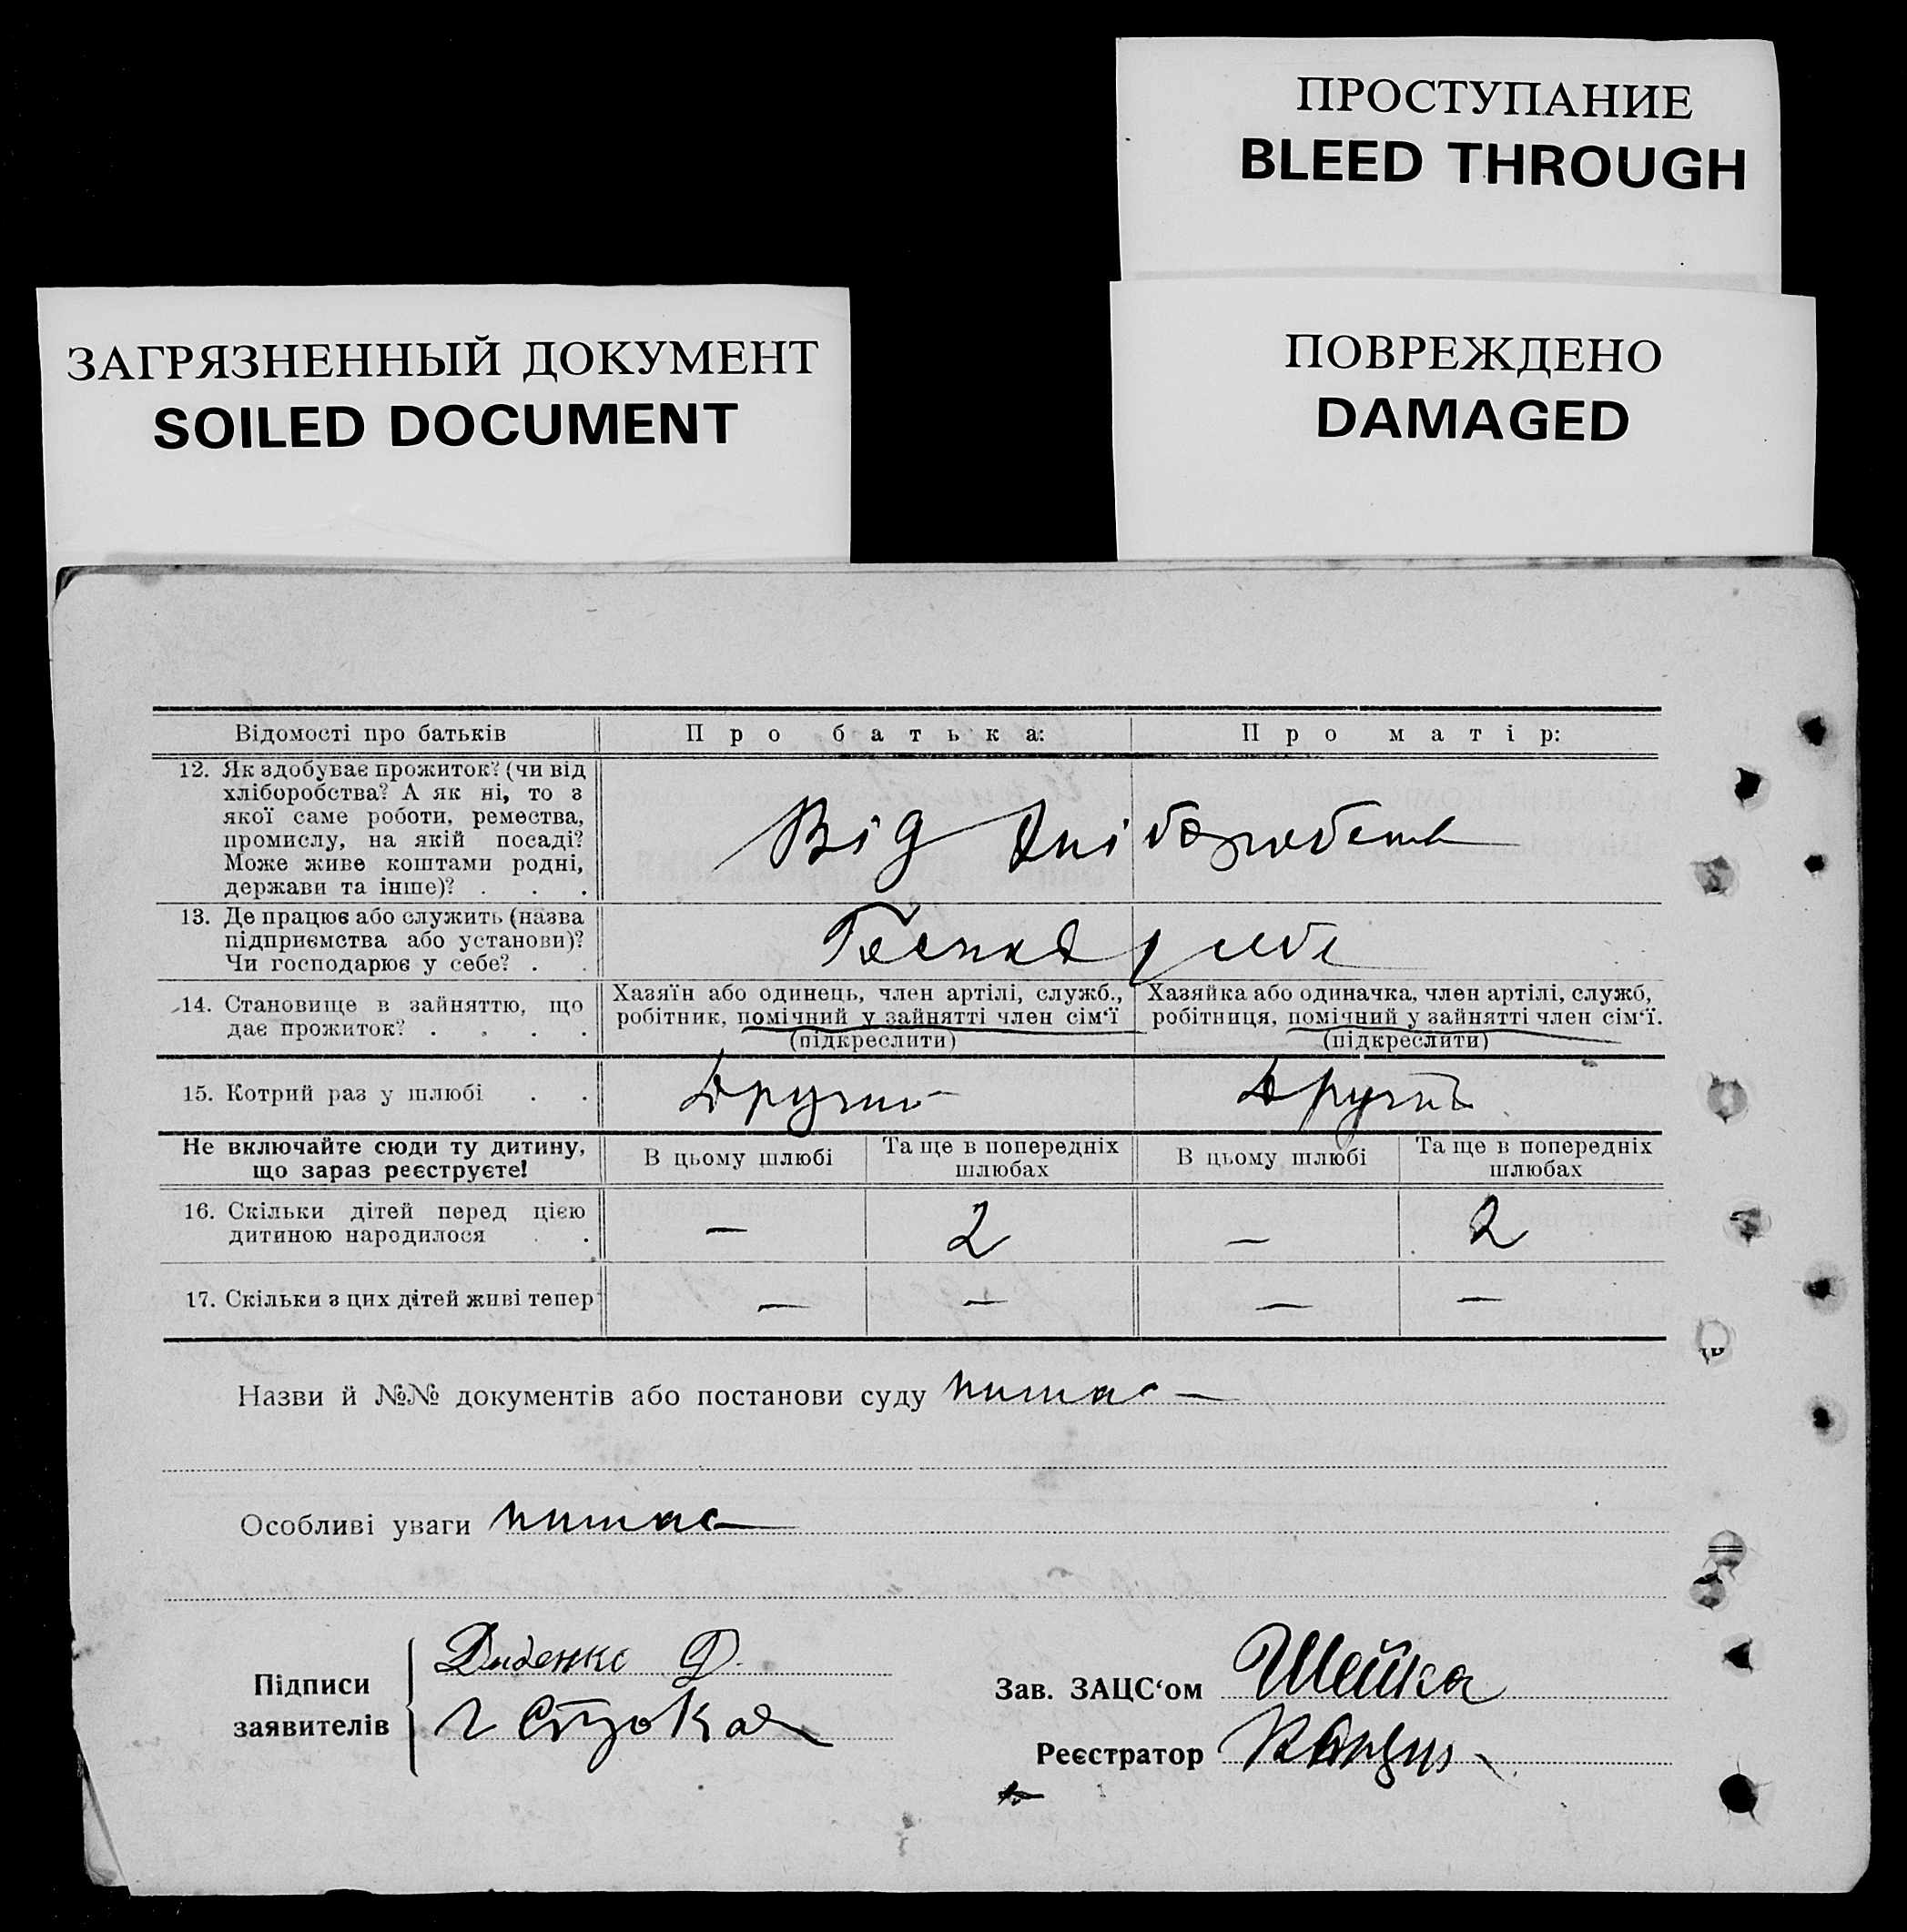 ПРОСТУПАНИЕ
BLEED THROUGH
ЗАГРЯЗНЕННЫЙ ДОКУМЕНТ
SOILED DOCUMENT
ПОВРЕЖДЕНО
DAMAGED
Відомості про батьків Про батька: Про матір:
12. Як здобуває прожиток? (чи від
хліборобства? А як ні, то з
якої саме роботи, ремества,
промислу, на якій посаді?
Може живе коштами родні,
держави та інше)? . . .
Від хліборобства
13. Де працює або служить (назва
підприємства або установи)?
Чи господарює у себе? . .
Господ у себе
14. Становище в зайняттю, що
дає прожиток? . . . .
Хазяїн або одинець, член артілі, служб.,
робітник, помічний у зайнятті член сім‘ї
(підкреслити)
Хазяйка або одиначка, член артілі, служб,
робітниця, помічний у зайнятті член сім‘ї.
(підкреслити)
15. Котрий раз у шлюбі . . Другий Другий
Не включайте сюди ту дитину,
що зараз реєструєте!
В цьому шлюбі Та ще в попередніх
шлюбах
В цьому шлюбі Та ще в попередніх
шлюбах
16. Скільки дітей перед цією
дитиною народилося . .
— 2 — 2
17. Скільки з цих дітей живі тепер — — — —
Назви й №№ документів або постанови суду немає —
Особливі уваги немає
Підписи
заявителів
Диденко Д.
Зав. ЗАЦС‘ом Шейка
Реєстратор